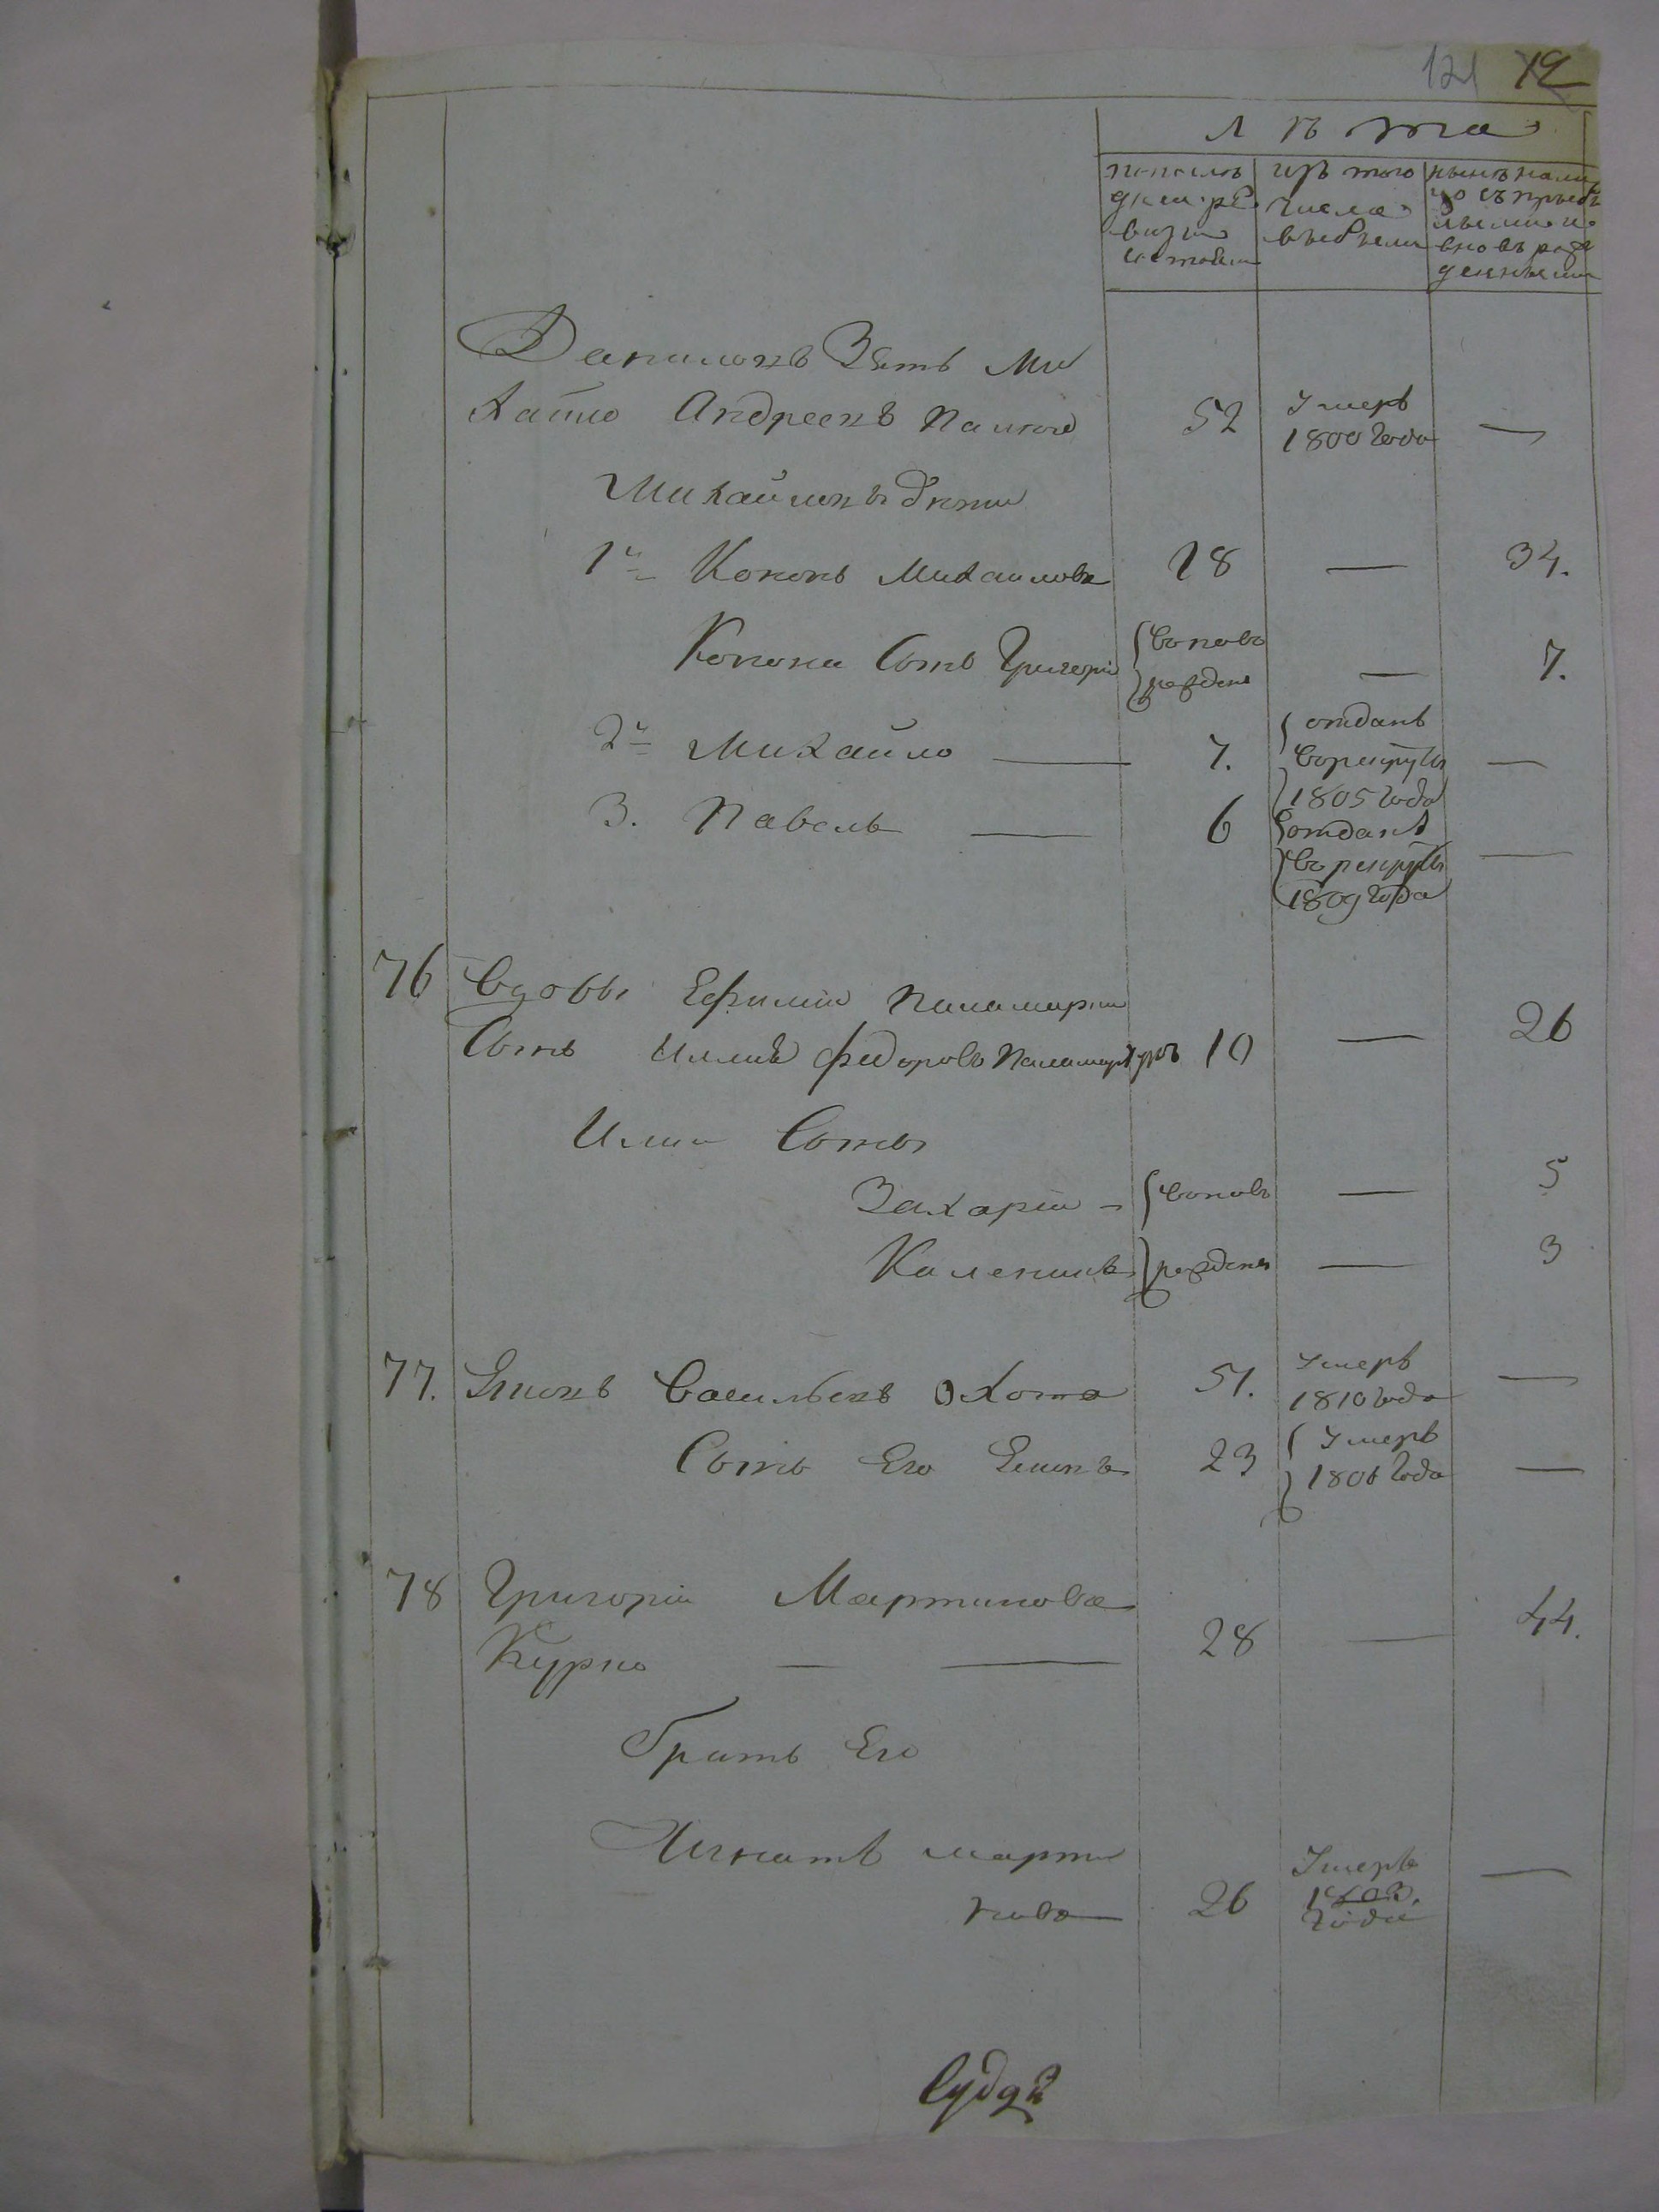 121 19
лѣта
попослѣ
дней ре
визіи
состояли
изъ того
числа
выбыли
нынѣ нали
цо съ прибы
лыми и
вновь рож
денными
Даниловъ Зять Ми
хайло Андреевъ
52
Умеръ
1800 года
—
Михайловы дѣти
1й Кононъ Михайловъ 18 — 34.
Конона Сынъ Григорій
вновь
рожденъ
— 7.
2й Михайло — 7.
отданъ
в рекруты
1805 года
—
3. Павелъ — 6
отданъ
в рекруты
1809 года
—
76 Вдовы Ефиміи Паламарки
Сынъ Иллия Федоровъ Паламарчукъ 10 — 26
Илии Сыны
Захарій — вновь — 5
Каленикъ рождены — 3
77. Яковъ Васильевъ Охота 51.
Умеръ
1810 года
—
Сынъ Его 23
Умеръ
1806 года
—
78 Григорій Мартиновъ
Курко — — 28 — 44.
Братъ Его
Игнатъ Марти
новъ 26
Умеръ
1803.
года
—
Судья